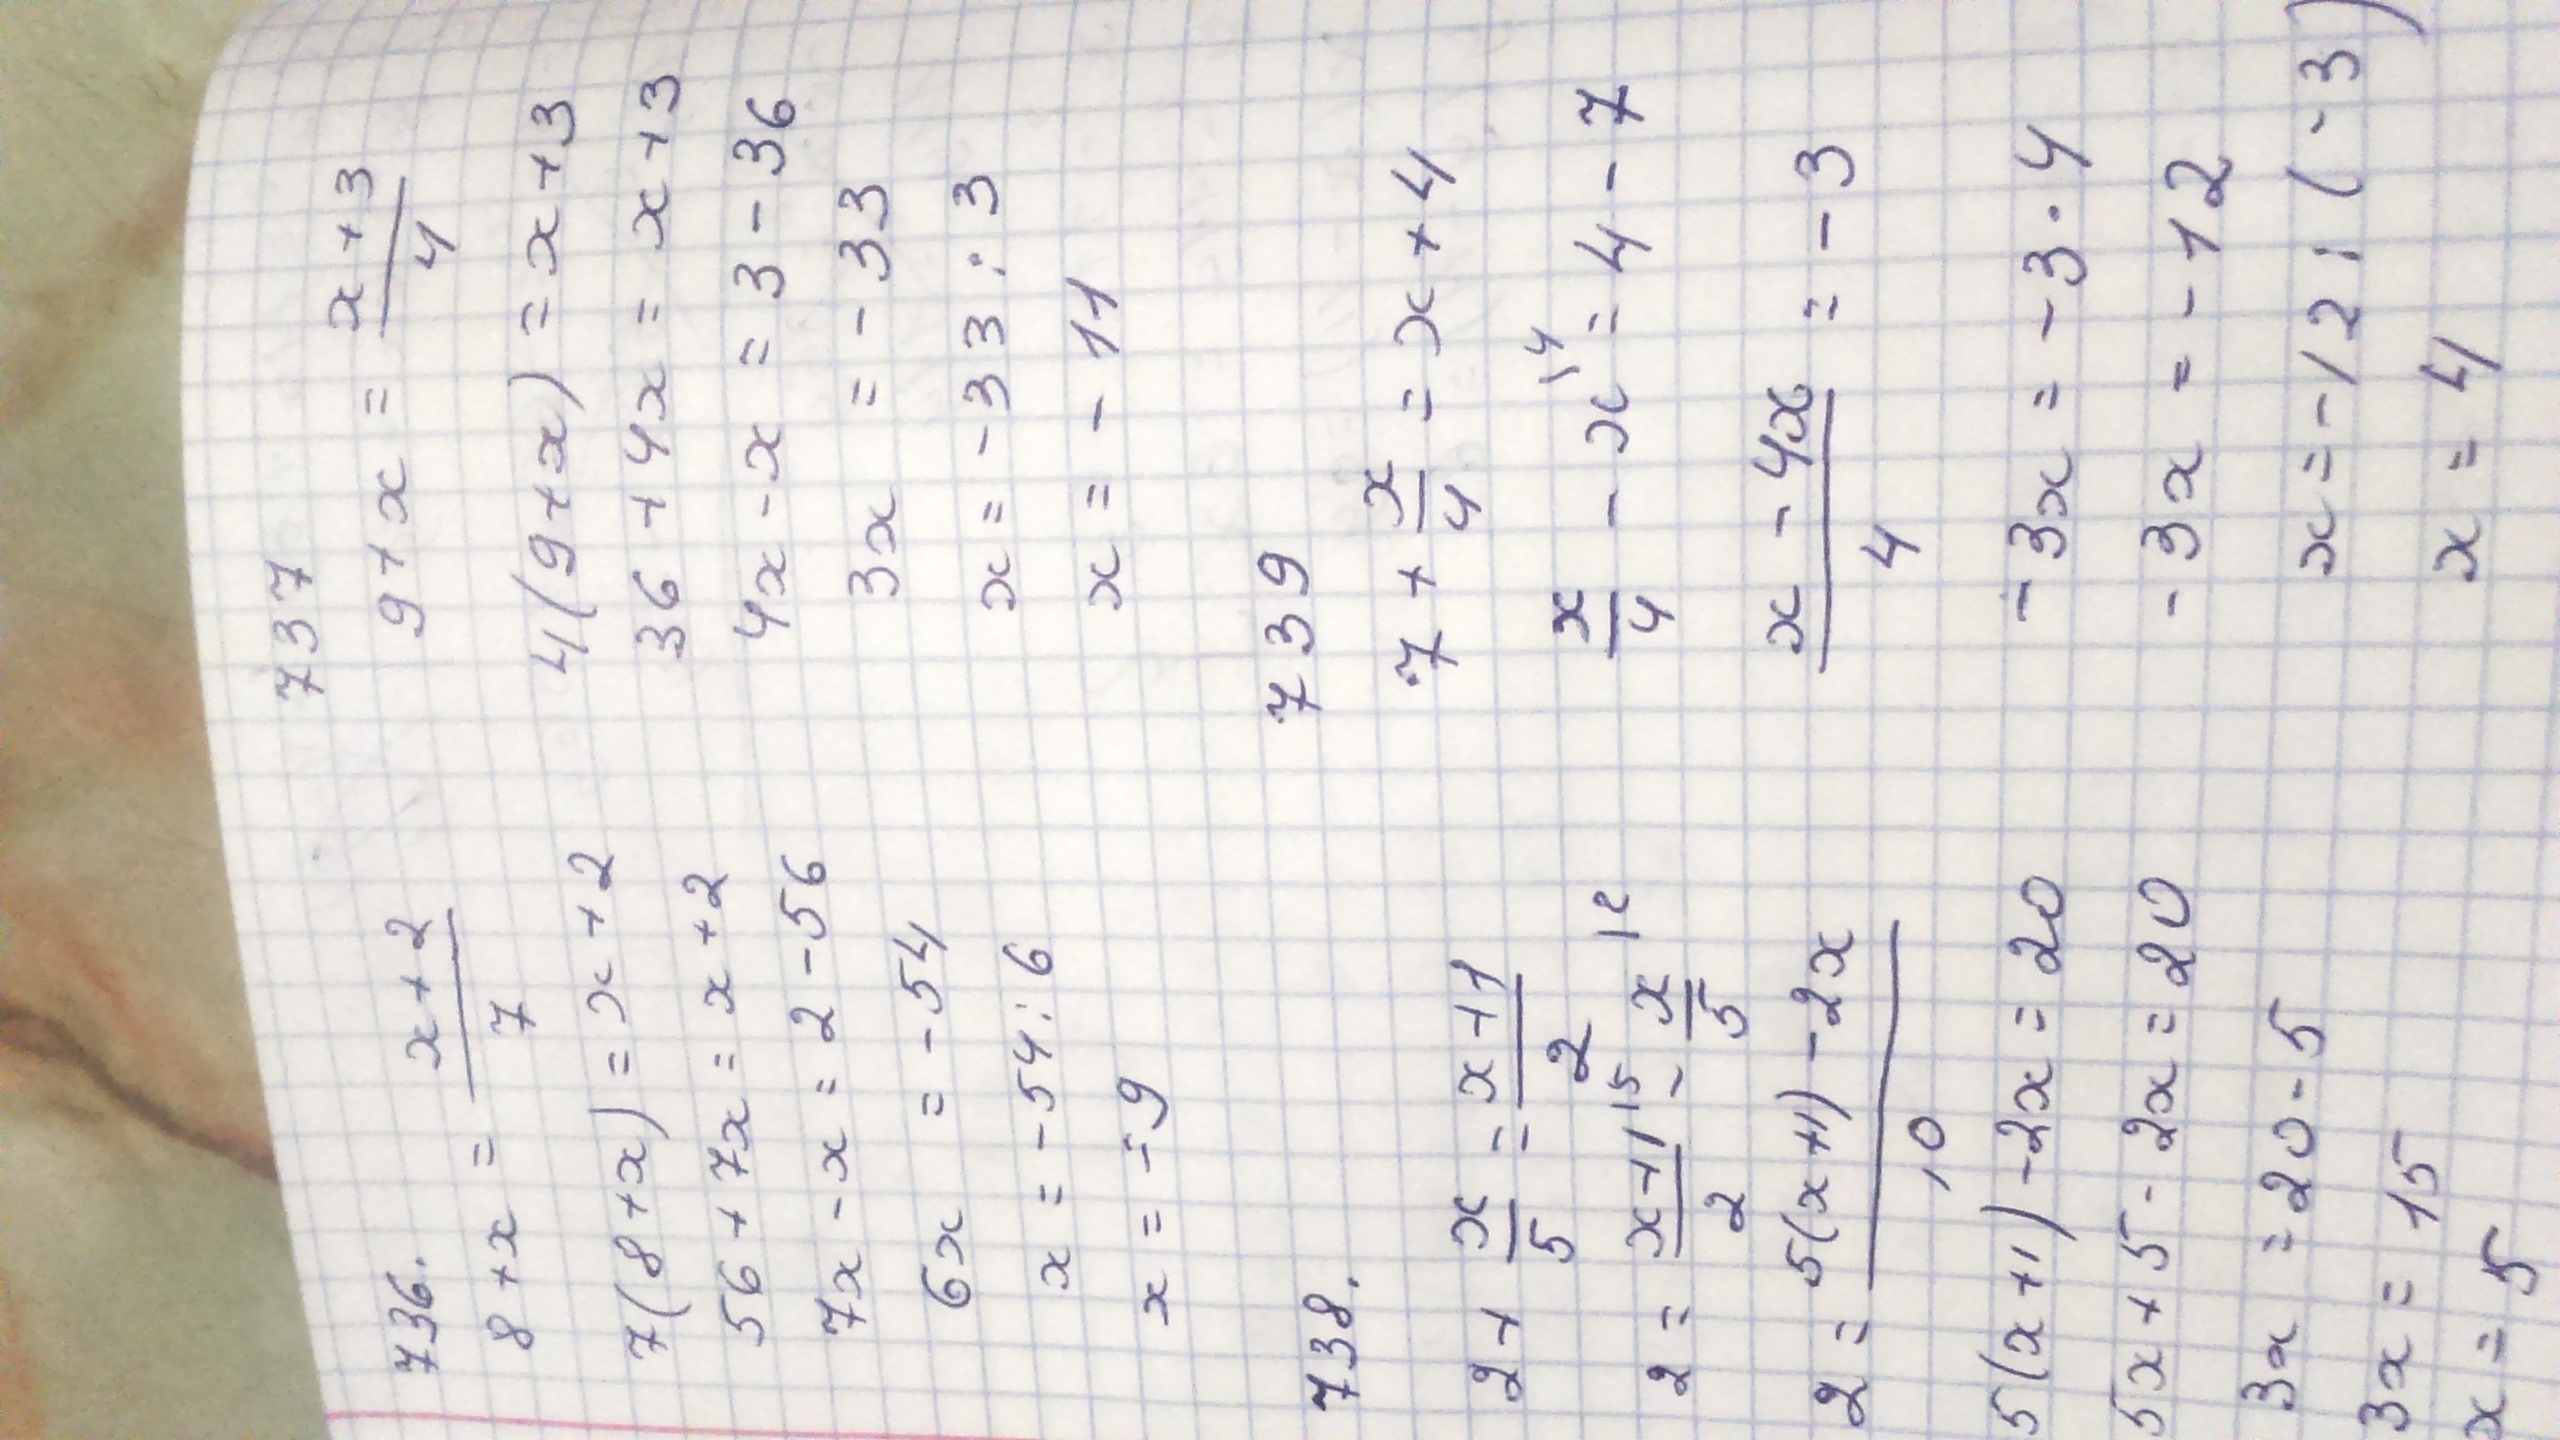 736.
8 + x = \frac{x+2}{7}
7(8+x) = x+2
56+7x = x+2
7x-x = 2-56
6x = -54
x = -54:6
x = -9
737
9+x = \frac{x+3}{4}
4(9+x) = x+3
36+4x = x+3
4x-x = 3-36
3x = -33
x = -33:3
x = -11
738.
2 + \frac{x}{5} = \frac{x+1}{2}
2 = \frac{x+1}{2}^{15} - \frac{x}{5}^{12}
2 = \frac{5(x+1)-2x}{10}
5(x+1)-2x = 20
5x+5-2x = 20
3x = 20-5
3x = 15
x = 5
739
7 + \frac{x}{4} = x+4
\frac{x}{4} - x^{14} = 4-7
\frac{x-4x}{4} = -3
-3x = -3·4
-3x = -12
x = -12:(-3)
x = 4